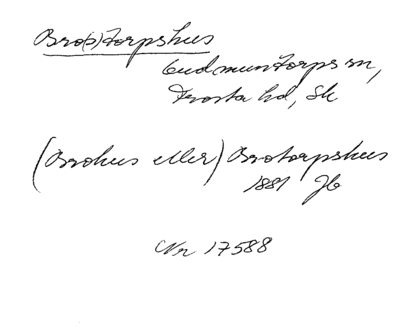 Bro(s)torpshus
Gudmuntorps sn,
Frosta hd, Sk
(Brohus eller) Brotorpshus
1881 Jb
Nr 17588